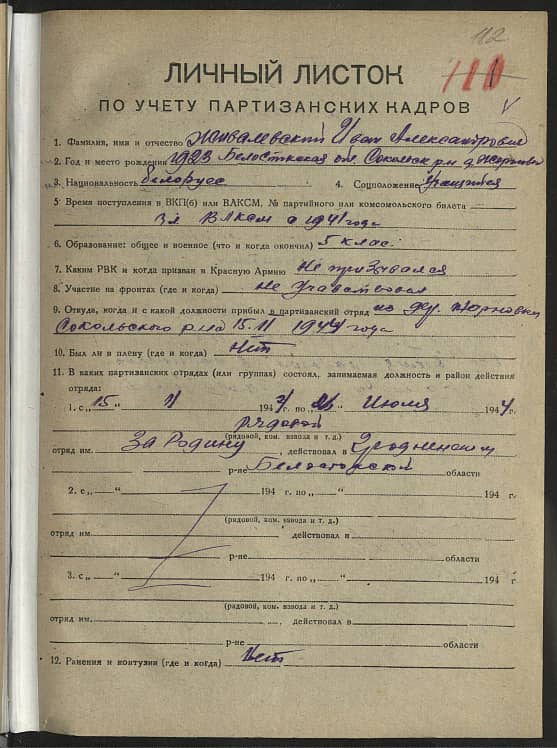 112
ЛИЧНЫЙ ЛИСТОК
ПО УЧЕТУ ПАРТИЗАНСКИХ КАДРОВ
1. Фамилия, имя и отчество Жывалевский Иван Александрович
2. Год и место рождения 1923 Белостокская
3. Национальность белорусс 4. Соцположение Учащийся
5 Время поступления в ВКП(б) или ВЛКСМ, № партийного или комсомольского билета
Чл ВЛКСМ с 1941 года
6. Образование: общее и военное (что и когда окончил) 5 клас.
7. Каким РВК и когда призван в Красную Армию Не призывался
8. Участие на фронтах (где и когда) не Учавствовал
9. Откуда, когда и с какой должности прибыл в партизанский отряд из дер.
Сокольского р-на 15. II 1944 года
10. Был ли в плену (где и когда) Нет
11. В каких партизанских отрядах (или группах) состоял, занимаемая должность и район действия
отряда:
1. с „15 “ II 194 г. по „ “ Июля 194 4 г.
рядовой
(рядовой, ком. взвода и т. д.)
отряд им. За Родину , действовал в Гродненском
р-не Белостокской области
2. с „ “ 194 г. по „ “ 194 г.
(рядовой, ком. взвода и т. д.)
отряд им. действовал в
р-не области
3. с „ “ 194 г. по „ “ 194 г
(рядовой, ком. взвода и т. д.)
отряд им. , действовал в
р-не области
12. Ранения и контузии (где и когда) Нет